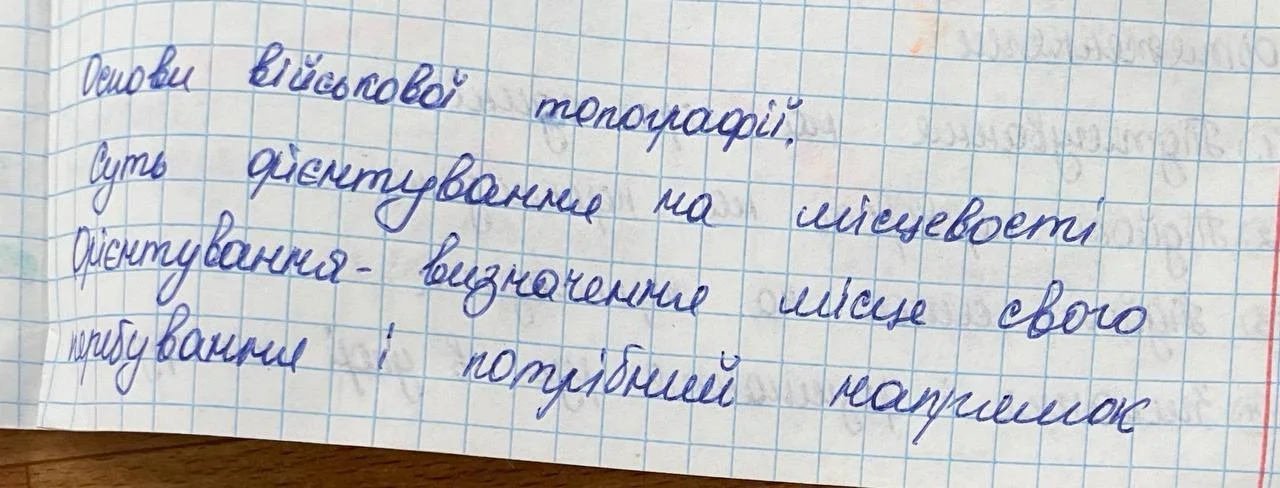 Основи військової топографії.
Суть орієнтування на місцевості
Орієнтування - визначення місце свого
перебування і потрібний напрямок